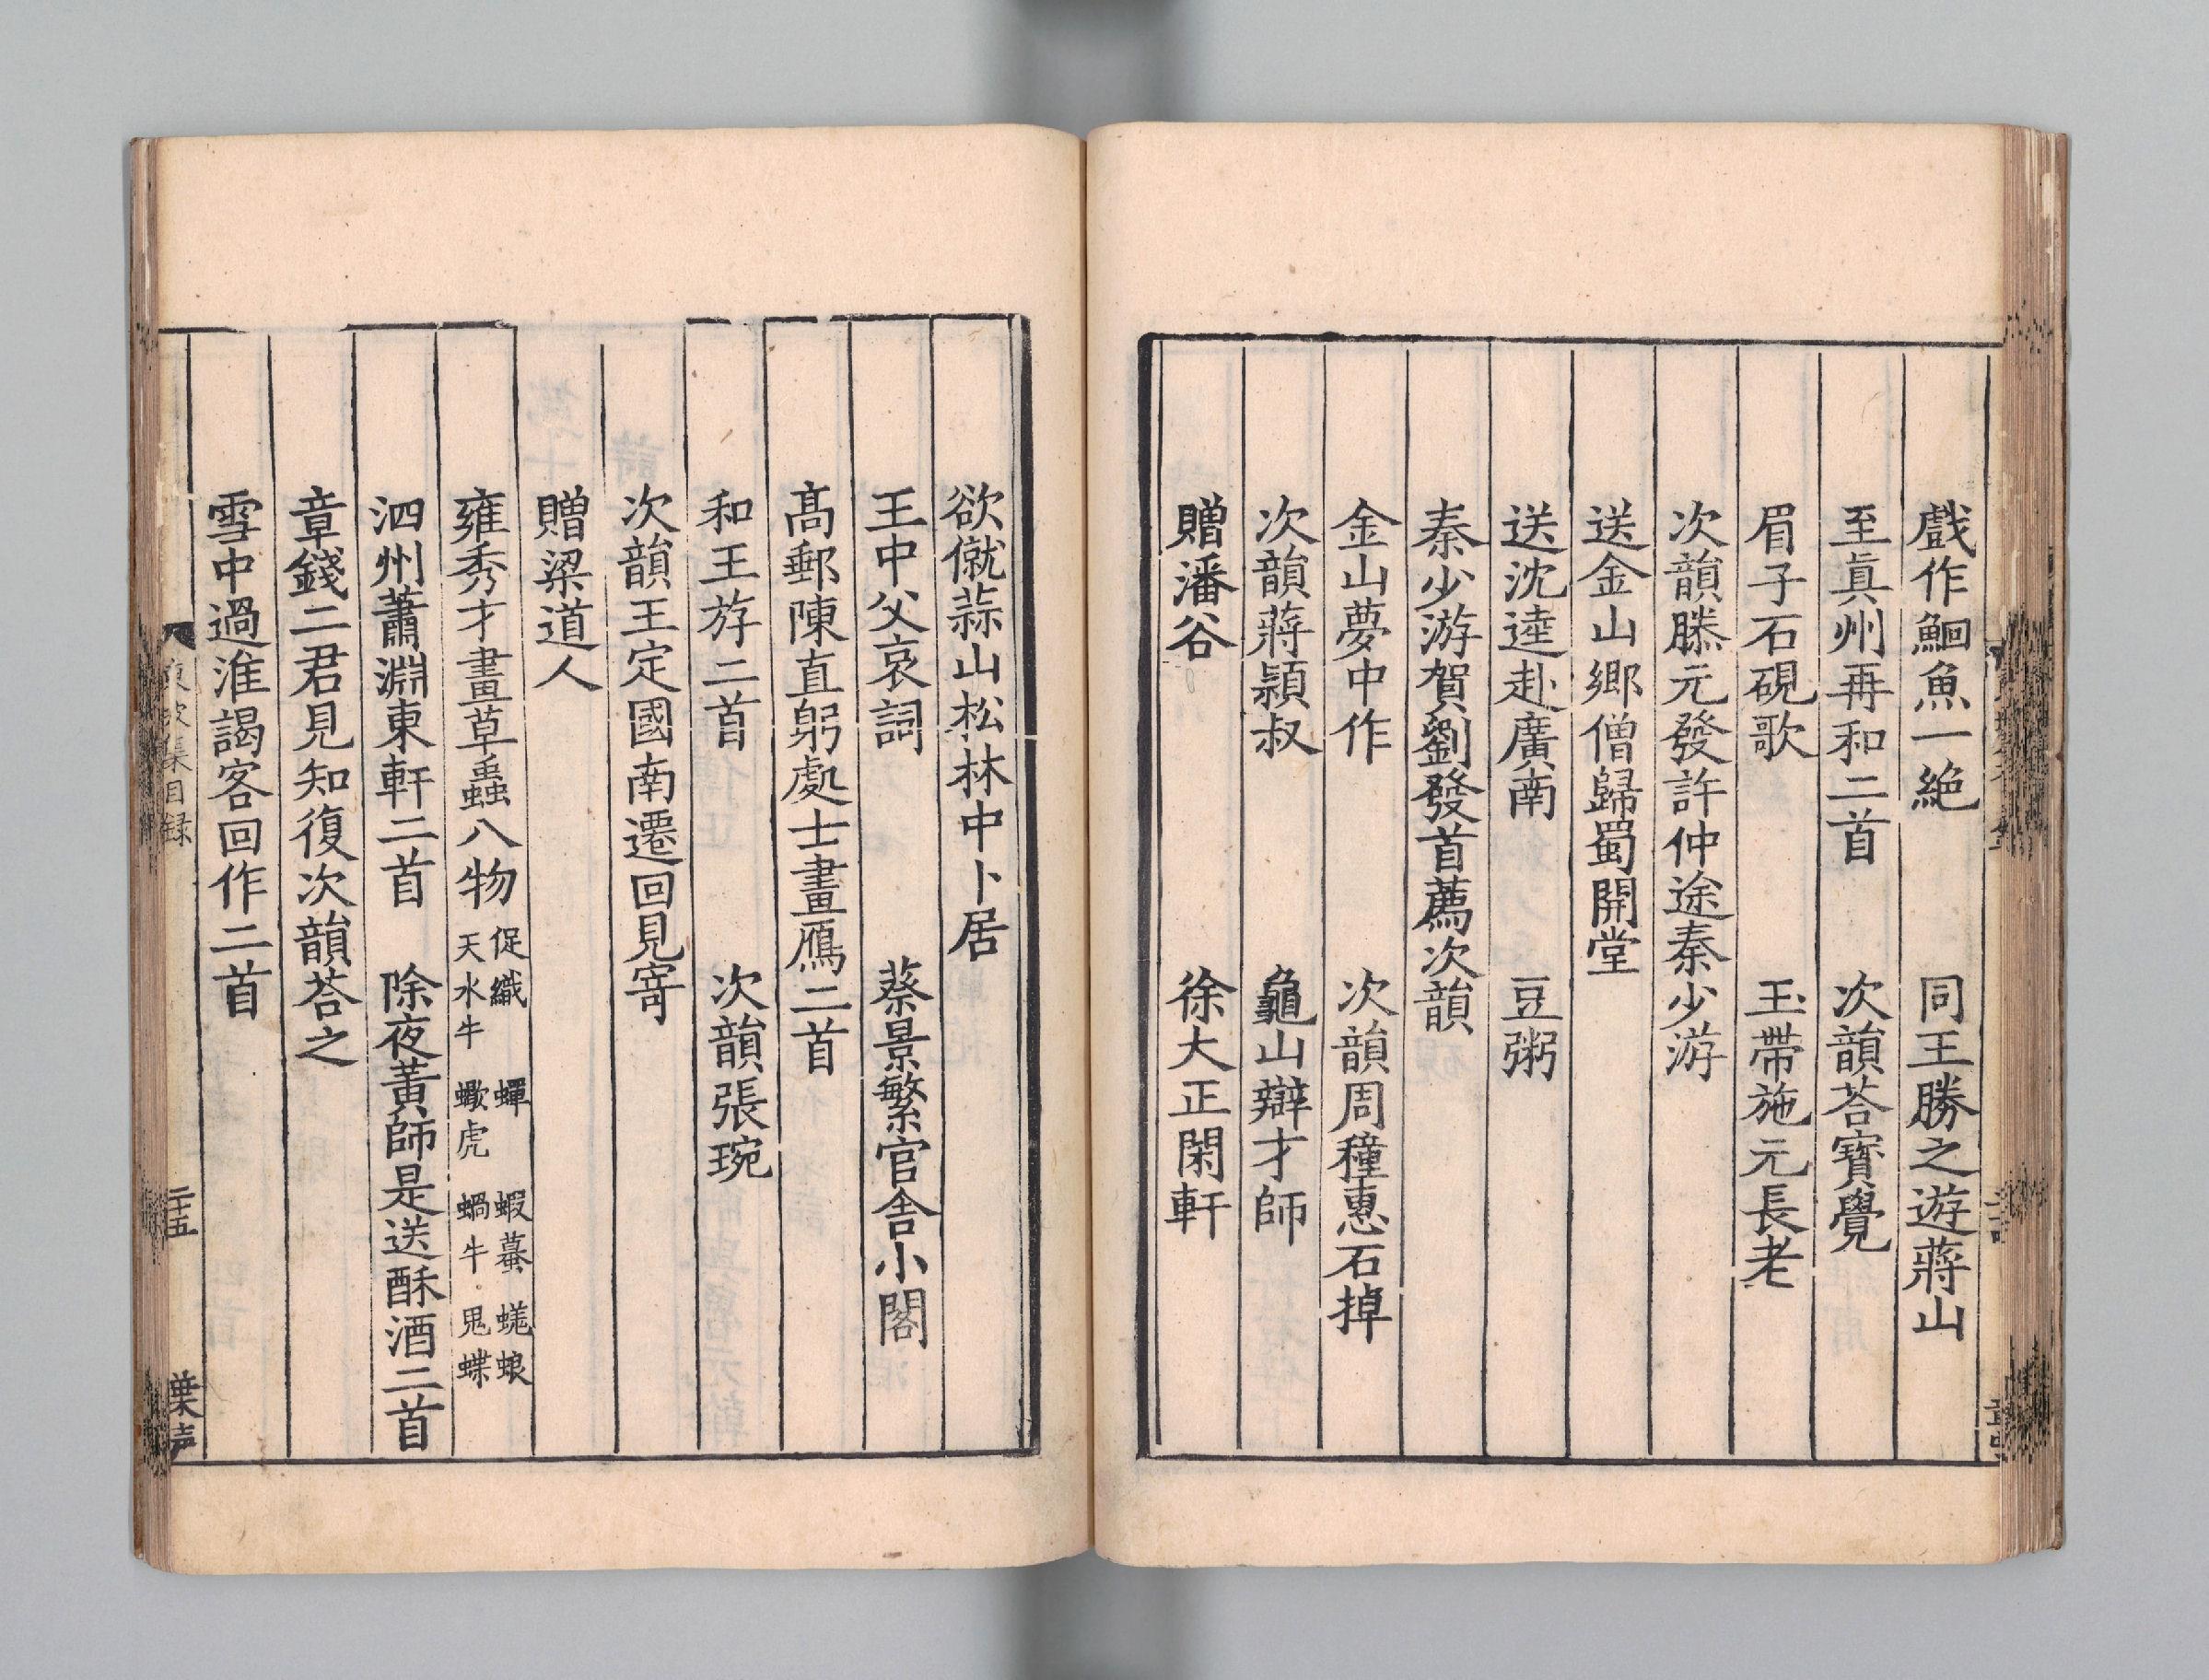 戲作鮰魚一絶　同王勝之遊蔣山
至眞州再和二首　次韻荅寶覺
眉子石硯歌　玉帶施元長老
次韻滕元發許仲途秦少游
送金山鄉僧歸蜀開堂
送沈逵赴廣南　豆粥
秦少游賀劉發首薦次韻
金山夢中作　次韻周穜惠石掉
次韻蔣穎叔　龜山辯才師
贈潘谷　徐大正閑軒
欲僦蒜山松林中卜居
王中父哀詞　蔡景繁官舍小閣
髙郵陳直躬處士畫鴈二首
和王斿二首　次韻張琬
次韻王定國南遷回見寄
贈梁道人
雍秀才畫草蟲八物　促織　蟬　蝦蟇　蜣蜋
天水牛　蠍虎　蝸牛　鬼蝶
泗州蕭淵東軒二首　除夜黃師是送酥酒二首
章錢二君見知復次韻荅之
雪中過淮謁客回作二首
東坡集目録
二十五
葉声